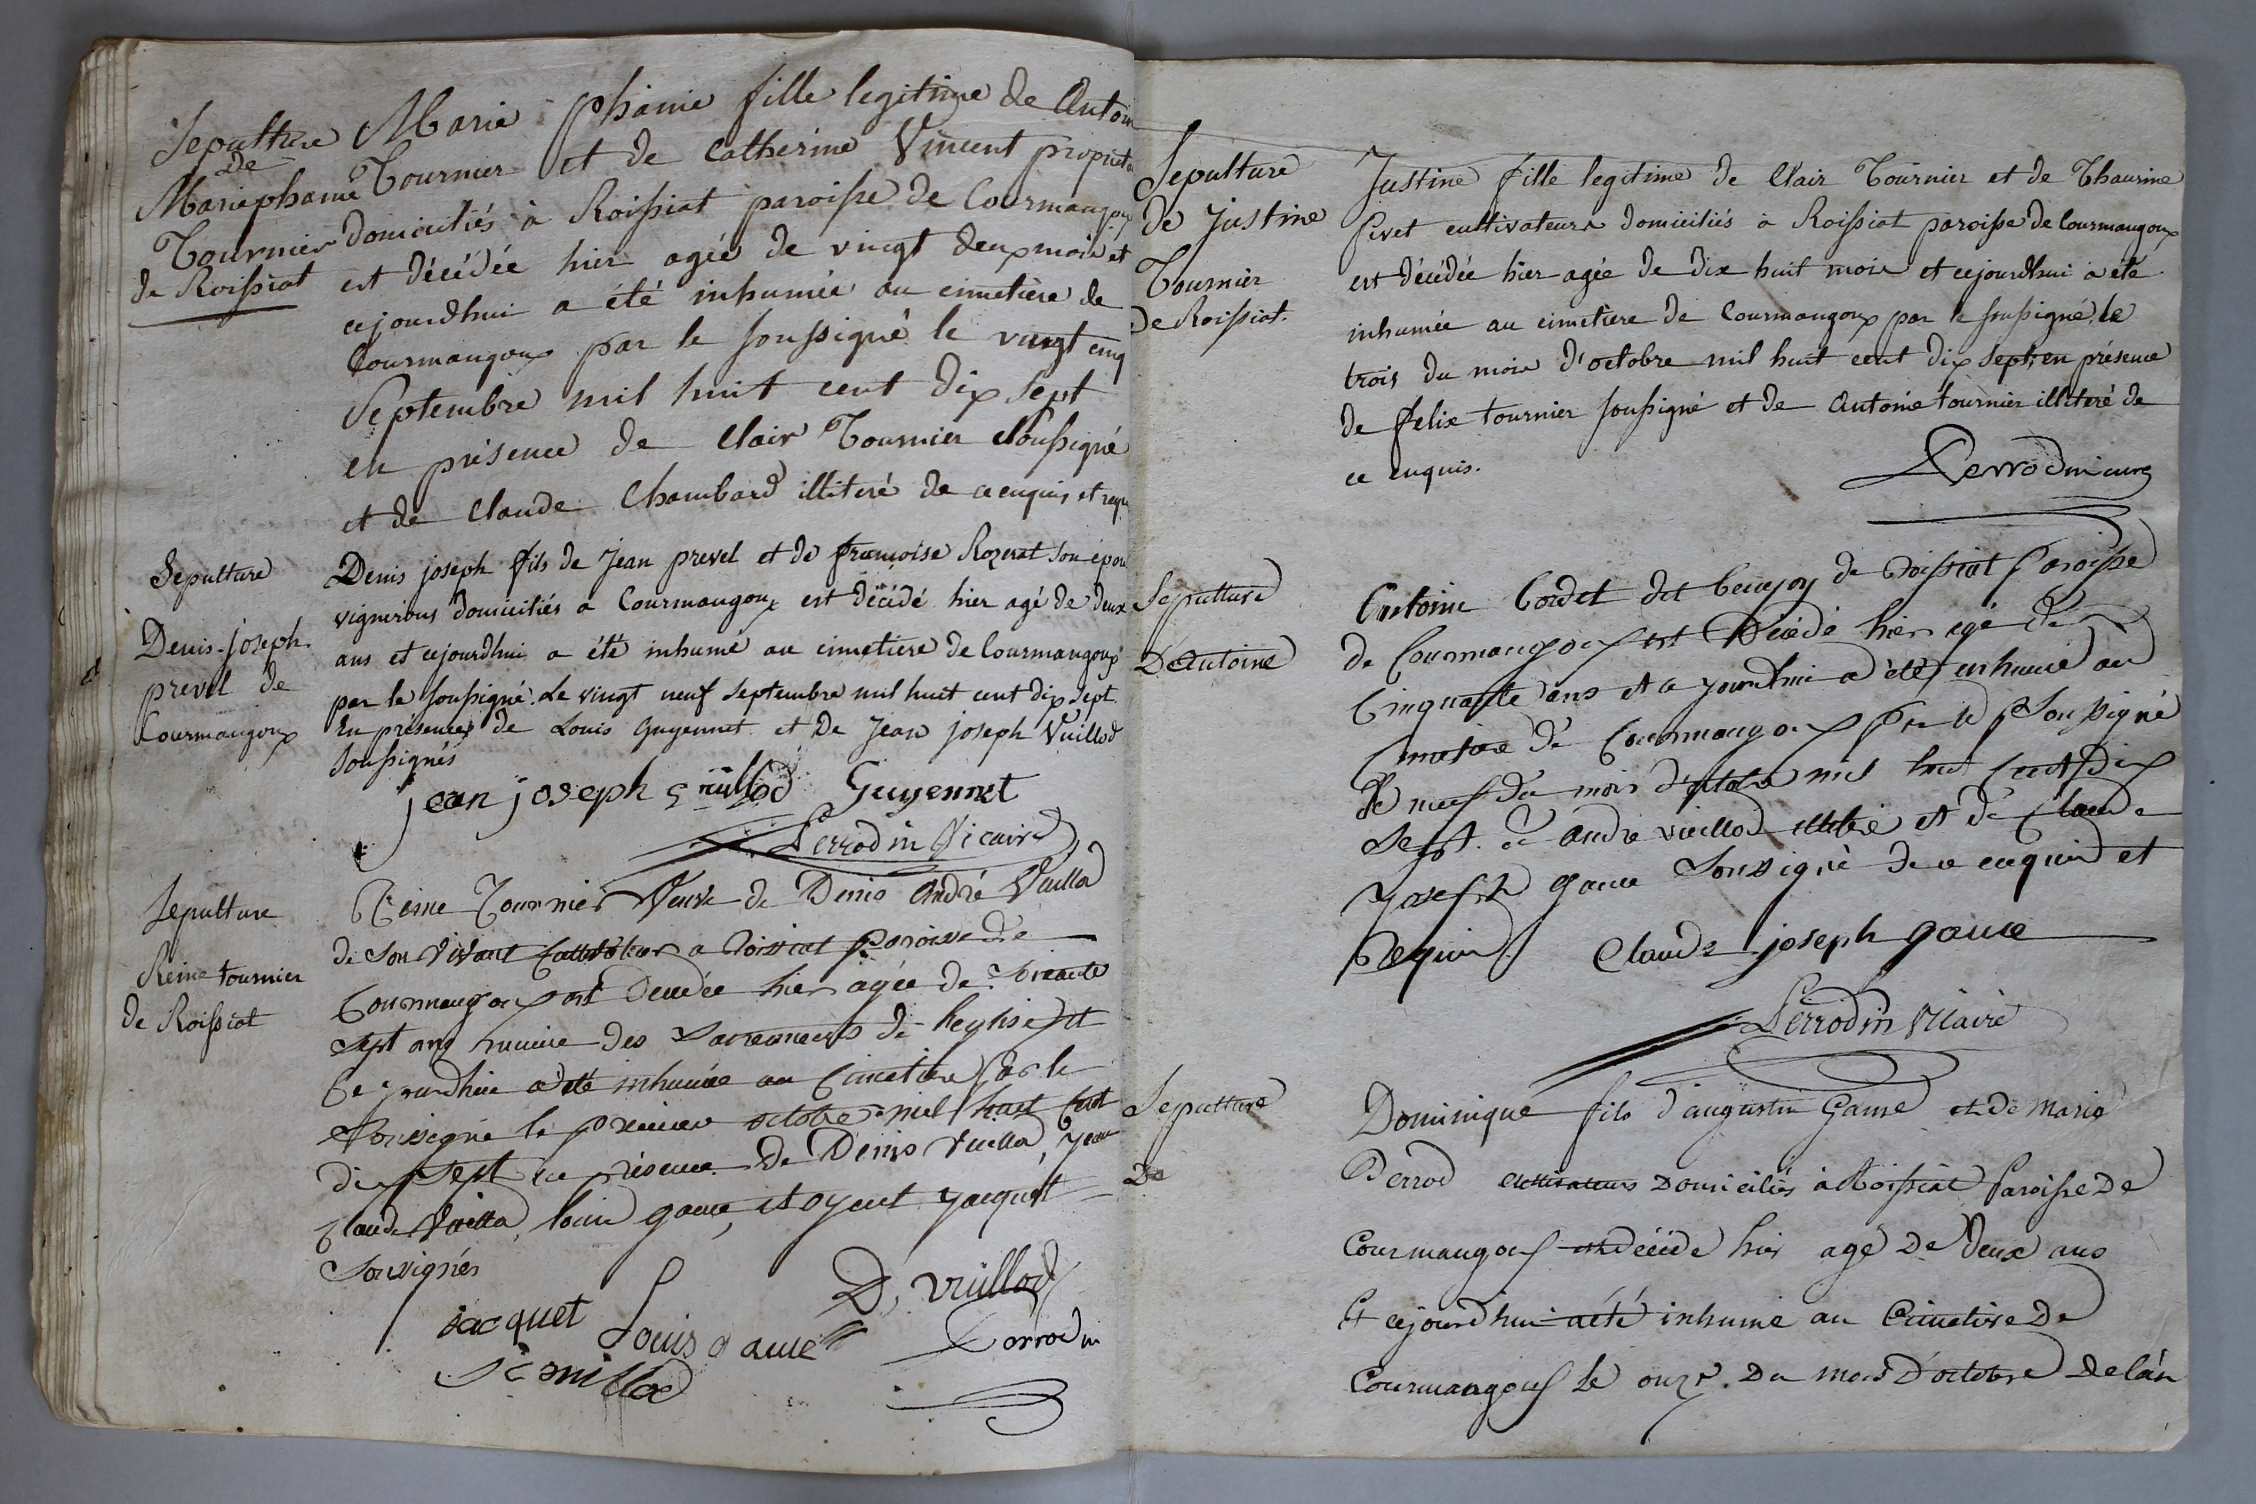 Sepulture
de
Mariephanie
Tournier
de Roissiat
Marie phanie fille legitime de Antoin
Tournier et de Catherine Vincent propriet
domiciliés à Roissiat paroisse de Courmangoux
est décédée hier agée de vingt deux mois et
cejourdhui a été inhumée au cimetière de
Courmangoux par le soussigné le vingt cinq
Septembre mil huit cent dix sept
en présence de Clair Tournier soussigné
et de Claude Chambard illiteré de ce enquis et requ
Sepulture
Denis-joseph
prevel de
Courmangoux
Denis joseph fils de Jean prevel et de françoise Rozerat son épou
vignerons domiciliés a Courmangoux est décédé hier agé de deux
ans et cejourdhui a été inhumé au cimetiere de Courmangoux
par le soussigné. Le vingt neuf Septembre mil huit cent dix sept
En présence de Louis Guyennet et De Jean joseph Vuillod
soussignés
jean joseph vuillod Guyennet
Perrodin Vicaire
Sepulture
Reine tournier
de Roissiat
Reine Tournier Veuve de Denis André Vuillod
de son vivant Cultivateur a Roissiat paroisse de
Courmangoux est décédée hier agée de
sept ans munie des Sacrements de l'eglise et
Ce jourdhui a été inhumée au Cimetiere par le
Soussigné le premier octobre mil huit Cent
dix sept en présence de Denis Vuillod, Jean
Claude Vuillod, louis gauce, et oyent Jacquet
Soussignés
Jacquet Louis gauce D, vuillod
Perrodin
vuillod
Sepulture
de Justine
Tournier
de Roissiat.
Justine fille legitime de Clair Tournier et de Thaurine
Pivet cultivateurs domiciliés à Roissiat paroisse de Courmangoux
est décédée hier agée de dix huit mois et cejourdhui a été
inhumée au cimetiere de Courmangoux par le soussigné, le
trois du mois d'octobre mil huit cent dix sept, en présence
de felix tournier soussigné et de Antoine tournier illiteré de
ce enquis.
Perrodin
Sepulture
De Antoine
Antoine Cordet dit de Roissiat paroisse
de Courmangoux est Décédé hier agé de
Cinquante ans et ce jourdhui a été inhumé au
Cimetiere de Courmangoux par le Soussigné
le neuf du mois d'octobre mil huit Cent dix
Sept. à andré vuillod illiteré et de Claude
Joseph gauce Soussigné de ce enquis et
Requis
Claude joseph gauce
Perrodin Vicaire
Sepulture
De
Dominique fils d'augustin Gause et de marie
Perrod cultivateurs Domiciliés à Roissiat paroisse De
Courmangoux est décédé hier agé De Deux ans
Et cejourdhui a été inhumé au Cimetiere De
Courmangoux le onze. Du mois D'octobre De l'an